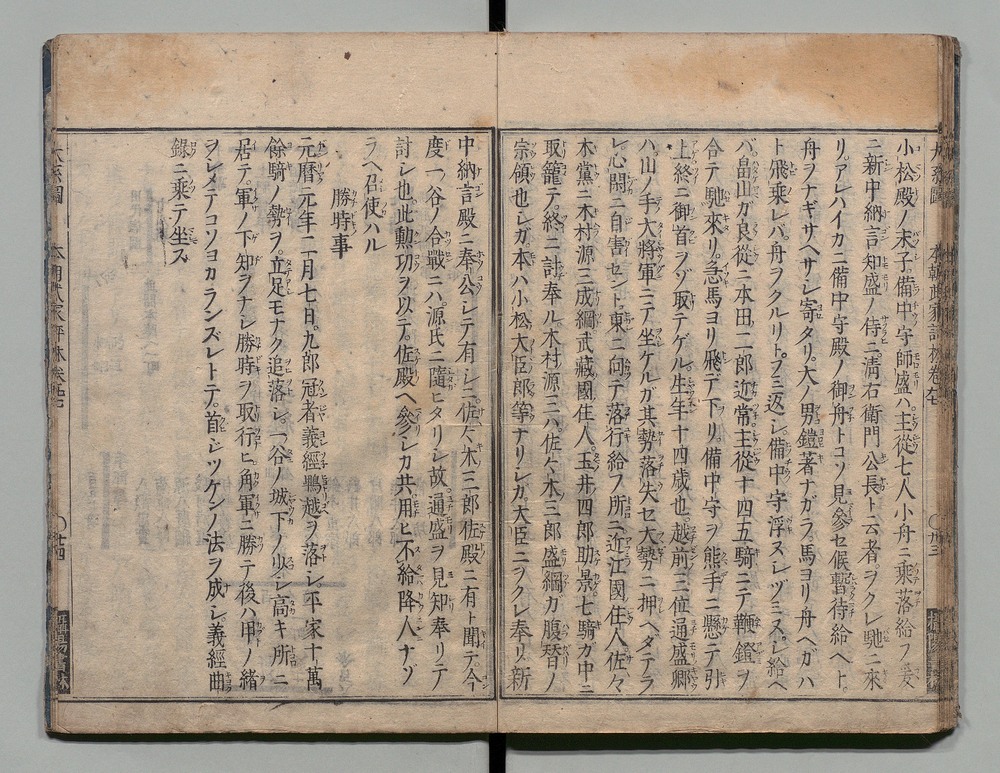 小松殿ノ末子備中守師盛ハ主從七人小舟ニ乘落給フ爰
ニ新中納言知盛ノ侍ニ清右衛門公長ト云者ヲクレ馳ニ來
リアレハイカニ備中守殿ノ御舟トコソ見參セ候暫待給ヘト
舟ヲナギサヘサシ寄タリ大ノ男鎧著ナガラ馬ヨリ舟ヘガハ
ト飛乘レバ舟ヲクルリトフミ返シ備中守浮ヌシヅミヌシ給ヘ
バ畠山ガ良從ニ本田二郎近常主從十四五騎ニテ鞭鐙ヲ
合テ馳來リ急馬ヨリ飛デ下リ備中守ヲ熊手ニ懸テ引
上終ニ御首ヲゾ取テゲル生年十四歳也越前三位通盛卿
ハ山ノ手大將軍ニテ坐ケルガ其勢落失セ大勢ニ押ヘダテラ
レ心閑ニ自害セント東ニ向テ落行給フ所ニ近江國住人佐々
木黨ニ木村源三成綱武藏國住人玉井四郎助景七騎ガ中ニ
取籠テ終ニ計奉ル木村源三ハ佐々木三郎盛綱カ腹替ノ
宗領也シガ本ハ小松大臣郎等ナリシカ大臣ニヲクレ奉リ新
中納言殿ニ奉公シテ有シニ佐々木三郎佐殿ニ有ト聞テ今
度一谷ノ合戰ニハ源氏ニ隨ヒタリシ故通盛ヲ見知奉リテ
討シ也此勲功ヲ以テ佐殿ヘ參シカ共用ヒ不給降人ナゾ
ラヘ召使ハル
勝時事
元暦元年二月七日九郎冠者義經鵯越ヲ落シ平家十萬
餘騎ノ勢ヲ立足モナク追落シ一谷ノ城下ノ少シ高キ所ニ
居テ軍ノ下知ヲナシ勝時ヲ取行ヒ角軍ニ勝テ後ハ甲ノ緒
ヲシメテコソヨカランズレトテ首シツケンノ法ヲ成シ義經曲
錄ニ乘テ坐ス